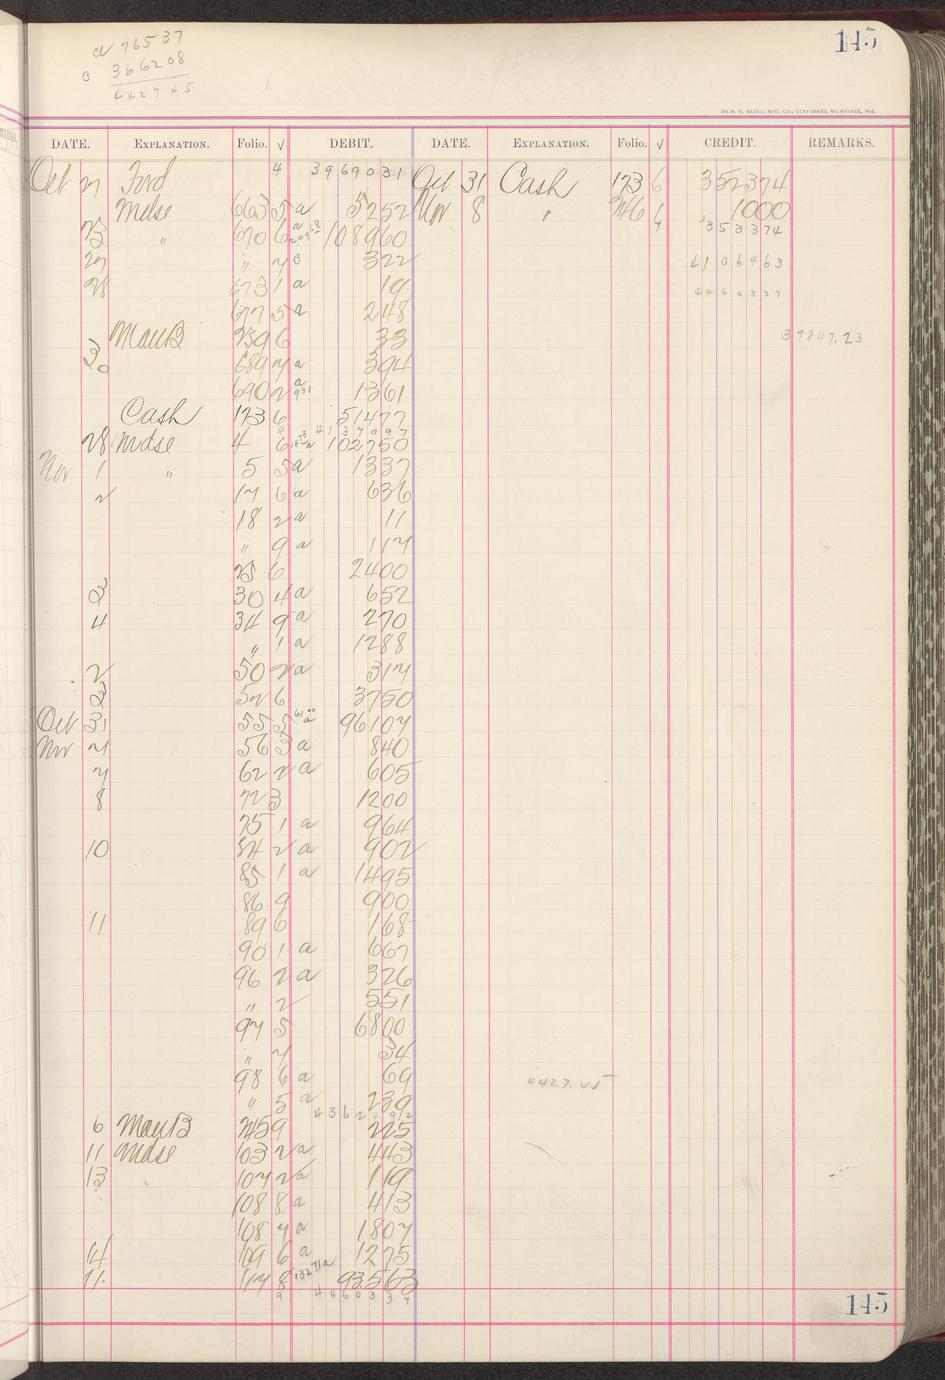 145
a 76537
B 366208
442745
THE H. G. RAZALL MFG. CO., STATIONERS, MILWAUKEE, WIS.
DATE. EXPLANATION. Folio. √ DEBIT. DATE. EXPLANATION. Folio. √ CREDIT. REMARKS.
Oct 27 Ford 4 3969031 Oct 31 Cash 173 6 352374
Mdse 663 5 a 5252 Nov 8 " 246 6 1000
23 " 670 6 a 108960 7 353374
27 " 7 B 322 4106963
28 673 1 a 19 4460337
677 5 a 248
Man B 259 6 33 37847.23
30 689 7 a 394
690 2 a 931 1361
Cash 173 6 51477
4 4137097
28 Mdse 4 6 a 102750
Nov 1 " 5 5 a 1337
2 17 6 a 636
18 2 a 11
" 9 a 117
25 6 2400
3 30 4 a 652
4 34 9 a 270
" 1 a 1288
2 50 2 a 317
3 52 6 3750
Oct 31 55 5 a 96107
Nov 7 56 3 a 840
7 62 2 a 605
8 72 3 1200
75 1 a 964
10 84 2 a 902
85 1 a 1495
86 9 900
11 89 6 168
90 1 a 667
96 2 a 326
" 2 551
97 5 6800
" 7 34
98 6 a 69 4427.45
" 5 a 239
6 Man B 245 9 225
11 Mdse 103 2 a 443
13 107 2 a 119
108 8 a 413
108 7 a 1807
14 109 6 a 1275
11 117 8 a 93563
9 4460337
145